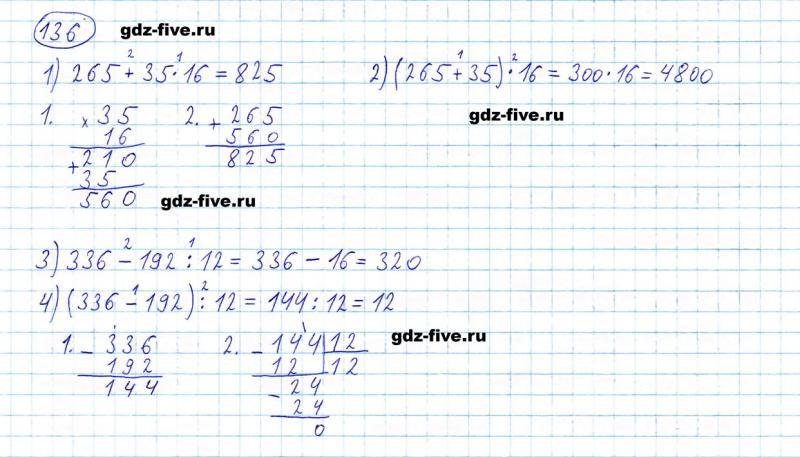 136 gdz-five.ru
1) 265 + 35 · 16 = 825
2 1
2) (265 + 35) · 16 = 300 · 16 = 4800
1 2
gdz-five.ru
1. × 35
16
+ 210
35
560
2. + 265
560
825
gdz-five.ru
3) 336 − 192 : 12 = 336 − 16 = 320
2 1
4) (336 − 192) : 12 = 144 : 12 = 12
1 2
gdz-five.ru
1. − 336
192
144
2. − 144 | 12
12 | 12
− 24
24
0